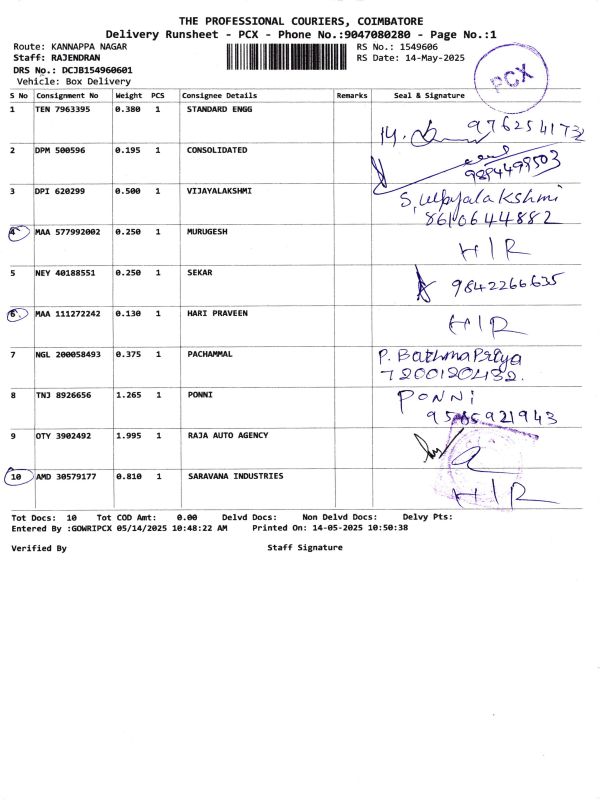 THE PROFESSIONAL COURIERS, COIMBATORE
Delivery Runsheet - PCX - Phone No.:9047080280 - Page No.:1
Route: KANNAPPA NAGAR RS No.: 1549606
Staff: RAJENDRAN RS Date: 14-May-2025
DRS No.: DCJB154960601
Vehicle: Box Delivery
PCX
S No Consignment No Weight PCS Consignee Details Remarks Seal & Signature
1 TEN 7963395 0.380 1 STANDARD ENGG
9762541732
2 DPM 500596 0.195 1 CONSOLIDATED
9894499503
3 DPI 620299 0.500 1 VIJAYALAKSHMI
8610644882
4 MAA 577992002 0.250 1 MURUGESH H/R
5 NEY 40188551 0.250 1 SEKAR 9842266635
6 MAA 111272242 0.130 1 HARI PRAVEEN H/R
7 NGL 200058493 0.375 1 PACHAMMAL P. BathmaPriya
7200120432.
8 TNJ 8926656 1.265 1 PONNI PONNi
9585921943
9 OTY 3902492 1.995 1 RAJA AUTO AGENCY
10 AMD 30579177 0.810 1 SARAVANA INDUSTRIES H/R
Tot Docs: 10 Tot COD Amt: 0.00 Delvd Docs: Non Delvd Docs: Delvy Pts:
Entered By :GOWRIPCX 05/14/2025 10:48:22 AM Printed On: 14-05-2025 10:50:38
Verified By Staff Signature